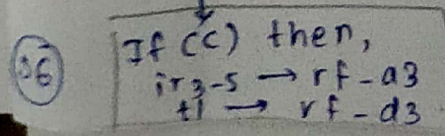 36
If (c) then,
ir3-5 → rf-a3
t1 → rf-d3